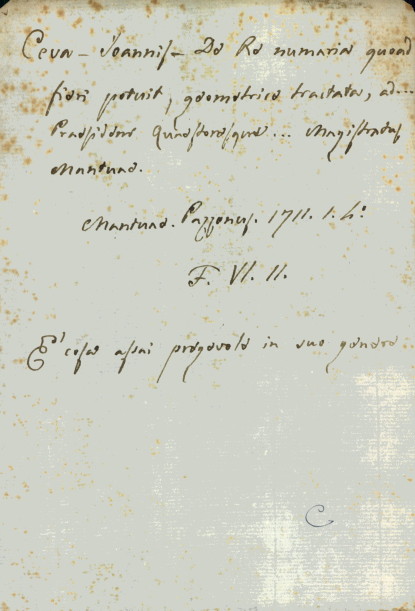 Ceva - Joannis - De Re numaria quoad
fieri potuit, geometrice tractata, ad...
Praesidem Quaestoresque... Magistratus
Mantuae.
Mantuae. Pazzonus. 1711. 1. 4°
F. VI. 11.
E' cosa assai pregevole in suo genere
C